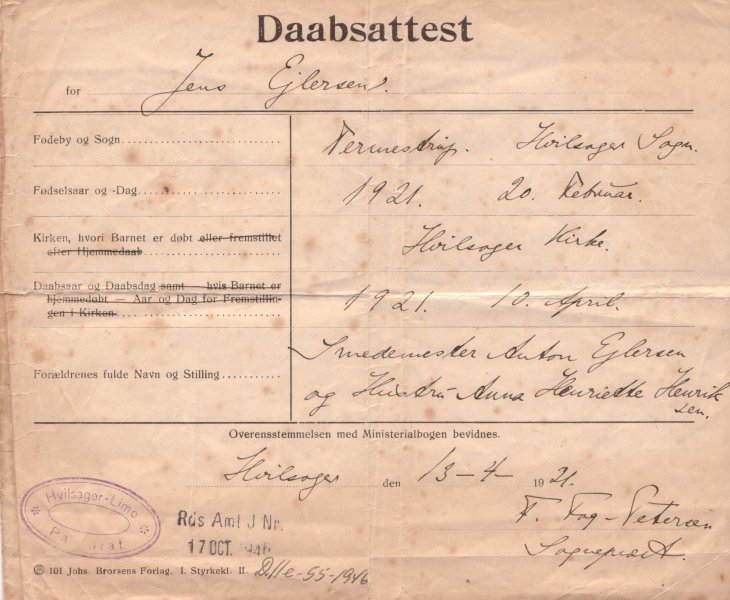 Daabsattest
for Jens Ejlersen.
Fødeby og Sogn Termestrup. Hvilsager Sogn.
Fødselsaar og -Dag 1921. 20. Februar.
Kirken, hvori Barnet er døbt eller fremstillet
efter Hjemmedaab Hvilsager Kirke.
Daabsaar og Daabsdag samt — hvis Barnet er
hjemmedøbt — Aar og Dag for Fremstillin-
gen i Kirken 1921. 10. April.
Smedemester Anton Ejlersen
Forældrenes fulde Navn og Stilling
og Hustru Anna Henriette Henrik
sen.
Overensstemmelsen med Ministerialbogen bevidnes.
Hvilsager den 13-4- 1921.
F. Fog-Petersen
Sognepræst.
Hvilsager-Lime
Pastorat
Rds Amt J Nr.
17 OCT. 1946
101 Johs. Brorsens Forlag. I. Styrkekl. II. -55-1946